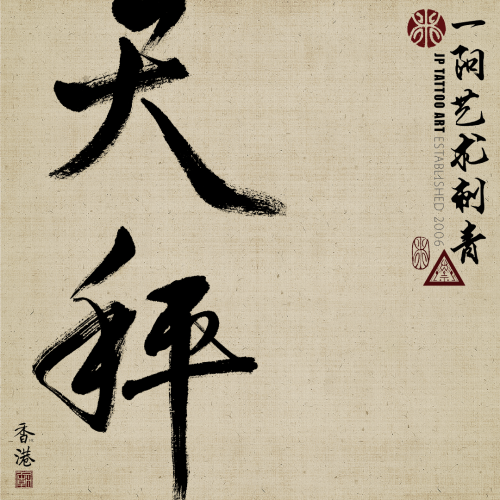 一阳艺术刺青
JP TATTOO ART ESTABLISHED 2006
天秤
香港